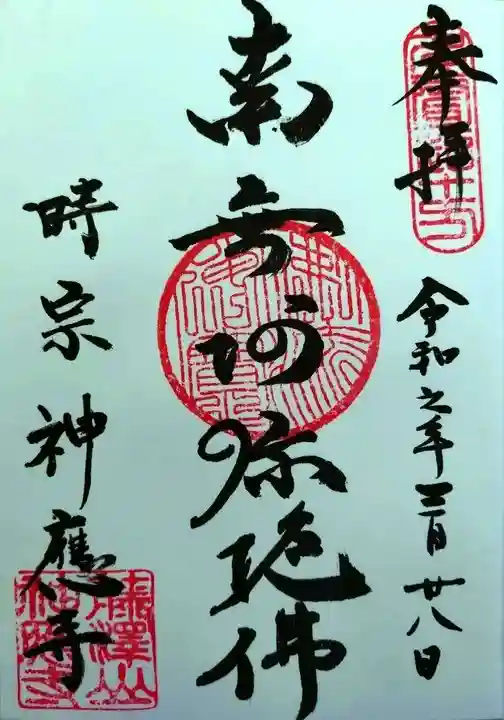 奉拝
令和 年三月廿八日
南無阿弥陀佛
時宗神應寺
藤澤山